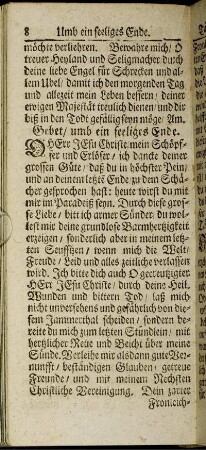 8 Umb ein seeliges Ende.
möchte verliehren. Bewahre mich/ O
treuer Heyland und Seligmacher durch
deine liebe Engel für Schrecken und al-
lem Ubel/ damit ich den morgenden Tag
und allezeit mein Leben bessern/ deiner
ewigen Majestät treulich dienen/ und dir
biß in den Todt gefällig seyn möge/ Am.
Gebet/ umb ein seeliges Ende.
O HErr JEsu Christe, mein Schöpf-
fer und Erlöser/ ich dancke deiner
grossen Güte/ daß du in höchster Pein/
und an deinem letzte Ende zu dem Schä-
cher gesprochen hast: heute wirst du mit
mir im Paradeiß seyn. Durch diese gros-
se Liebe/ bitt ich armer Sünder/ du wol-
lest mir deine grundlose Barmhertzigkeit
erzeigen/ sonderlich aber in meinem letz-
ten Seufftzen/ wenn mich die Welt/
Freude/ Leid und alles zeitliche verlassen
wird. Ich bitte dich auch O gecreutzigter
HErr JEsu Christe/ durch deine Heil.
Wunden und bittern Tod/ laß mich
nicht unversehens und gefährlich von die-
sem Jammerthal scheiden/ sondern bere-
te du mich zum letzten Stündlein/ mit
hertzlicher Reue und Beicht über meine
Sünde. Verleihe mir alsdann gute Ver-
nunfft/ beständigen Glauben/ getreue
Freunde/ und mit meinem Nechsten
Christliche Vereinigung. Dein zarter
Fronleich-